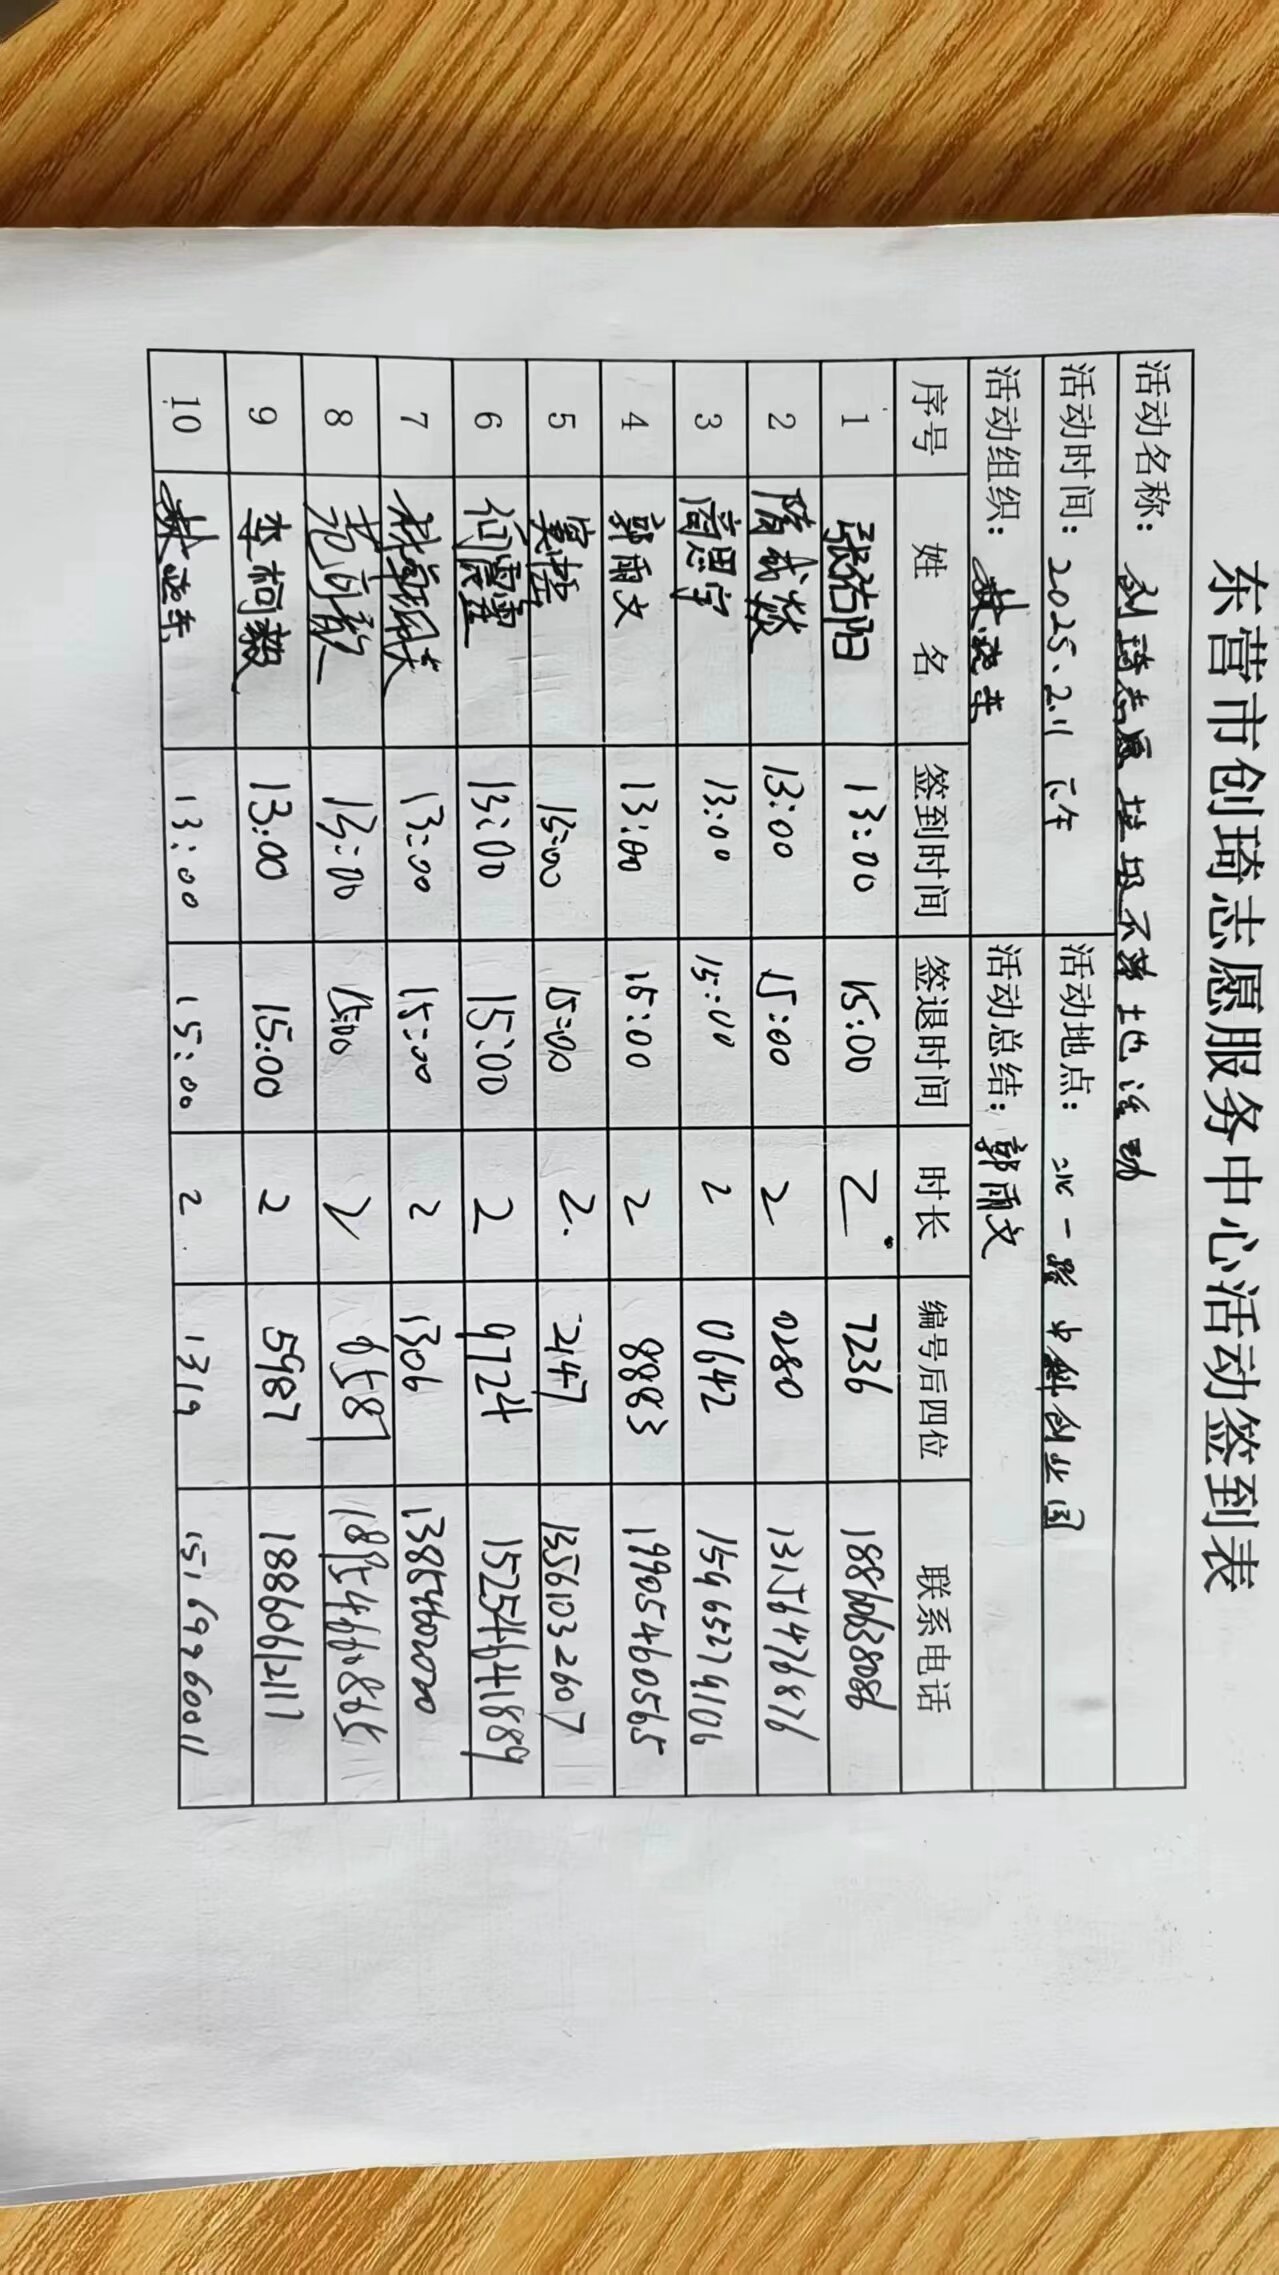 东营市创琦志愿服务中心活动签到表
活动名称：创琦志愿 垃圾不落土地活动
活动时间：2025.2.11 下午 活动地点：北一路 中科创业园
活动组织： 活动总结：郭雨文
序号 姓 名 签到时间 签退时间 时长 编号后四位 联系电话
1 张祐阳 13:00 15:00 2 7236 18860638086
2 隋成燚 13:00 15:00 2 0280 13156476876
3 商思宇 13:00 15:00 2 0642 15965279106
4 郭雨文 13:00 15:00 2 8883 19905460565
5 15:00 2 2147 13561032607
6 何震霆 13:00 15:00 2 9724 15254641889
7 13:00 15:00 2 1306 13854602000
8 范可歆 13:00 15:00 2 6587 18954660865
9 李柯毅 13:00 15:00 2 5987 18860612111
10 13:00 15:00 2 1319 15169960011